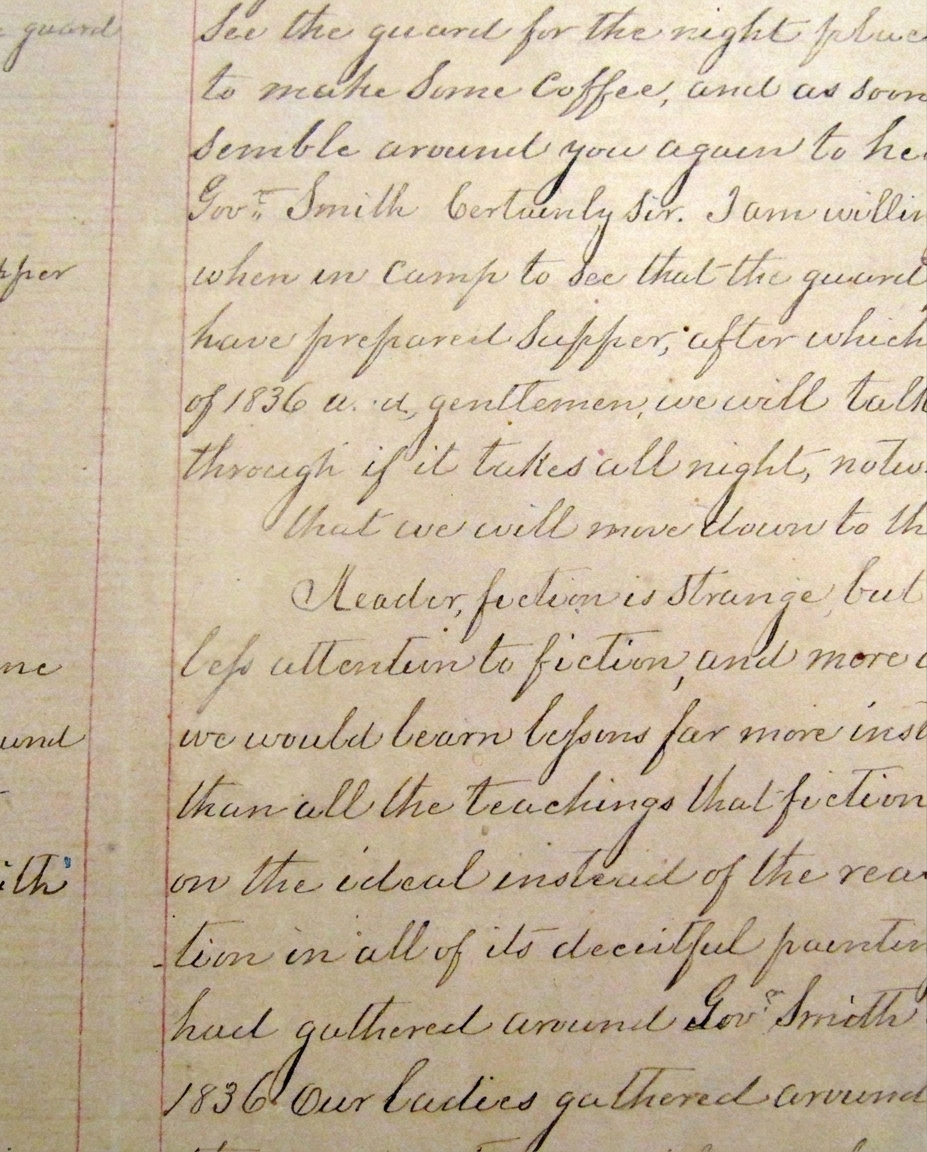 guard
pper
ne
und
ith
See the guard for the night plac
to make Some Coffee, and as soon
semble around you again to hea
Govr. Smith Certainly Sir. I am willin
when in Camp to See that the guard
have prepared Supper, after which
of 1836 a. d, gentlemen, we will talk
through if it takes all night, notw
that we will move down to th
Reader, fiction is Strange, but
less attention to fiction, and more a
we would learn lessons far more inst
than all the teachings that fiction
on the ideal instead of the rea
tion in all of its deceitful paintin
had gathered around Govr. Smith
1836 Our ladies gathered around